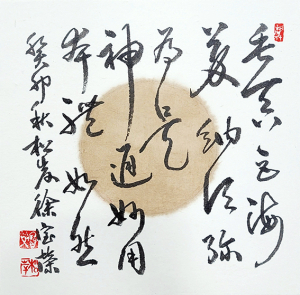 毛吞巨海
芥纳须弥
为是
神通妙用
本体如然
癸卯秋松岩徐宝荣